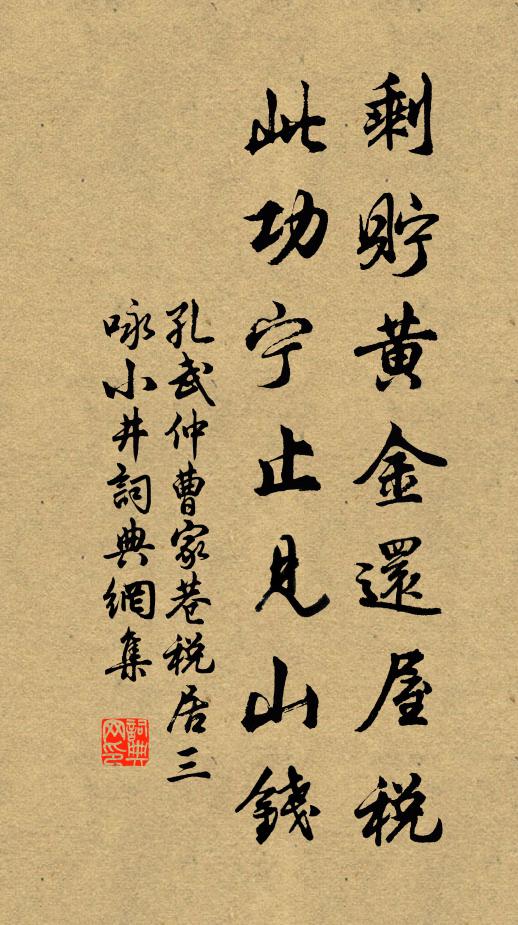 剩貯黃金還屋稅
此功宁止見山錢
孔武仲曹家巷稅居三
咏小井詞典網集
詞典网印